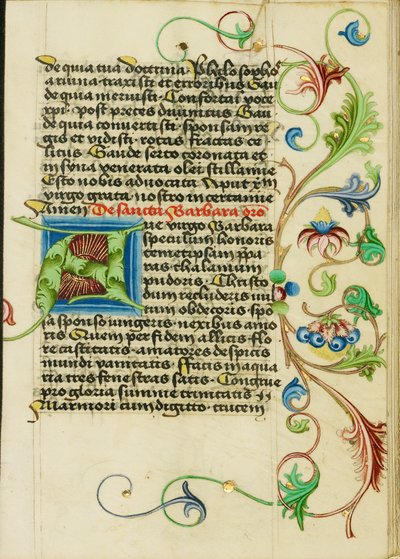 de quia tua doctrina · Philosopho
a ruina traxisti et erroribus Gau
de quia meruisti · Confortari voce
xpi · post preces divinitus Gau
de quia convertisti · sponsam re
gis et vidisti · rotas fractas ce
litus Gaude serto coronata et
in syna venerata olei stillamine
Esto nobis advocata · Apud
virgo grata nostro in certamine
Amen De sancta Barbara oro
Ave virgo Barbara
speculum honoris
temetipsam ppa
ras thalamum
pudoris · Christo
cum recluderis
obdecoris · spo
sa sponso iungeris · nexibus amo
ris Quem perfidem allicis flo
re castitatis · amatores despicis
mundi vanitatis · Facis in aqua
ria tres fenestras satis · Congrue
pro gloria summe trinitatis In
Marmore cum digitto · crucem